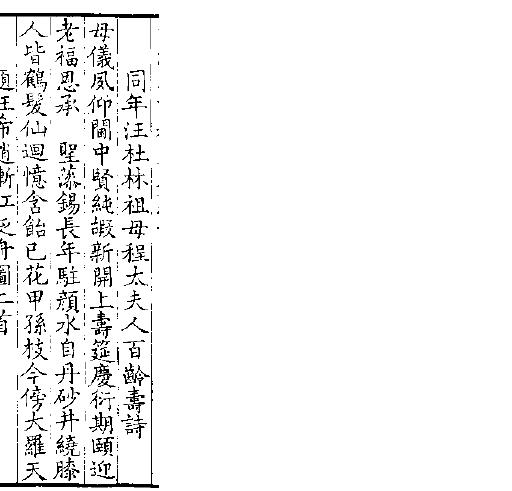 同年汪杜林祖母程太夫人百齡壽詩
母儀夙仰閫中賢純嘏新開上壽筵慶衍期頤迎
老福恩承　聖藻錫長年駐顏水自丹砂井繞膝
人皆鶴髮仙迴憶含飴已花甲孫枝今傍大羅天
題汪希趙浙江泛舟圖二首